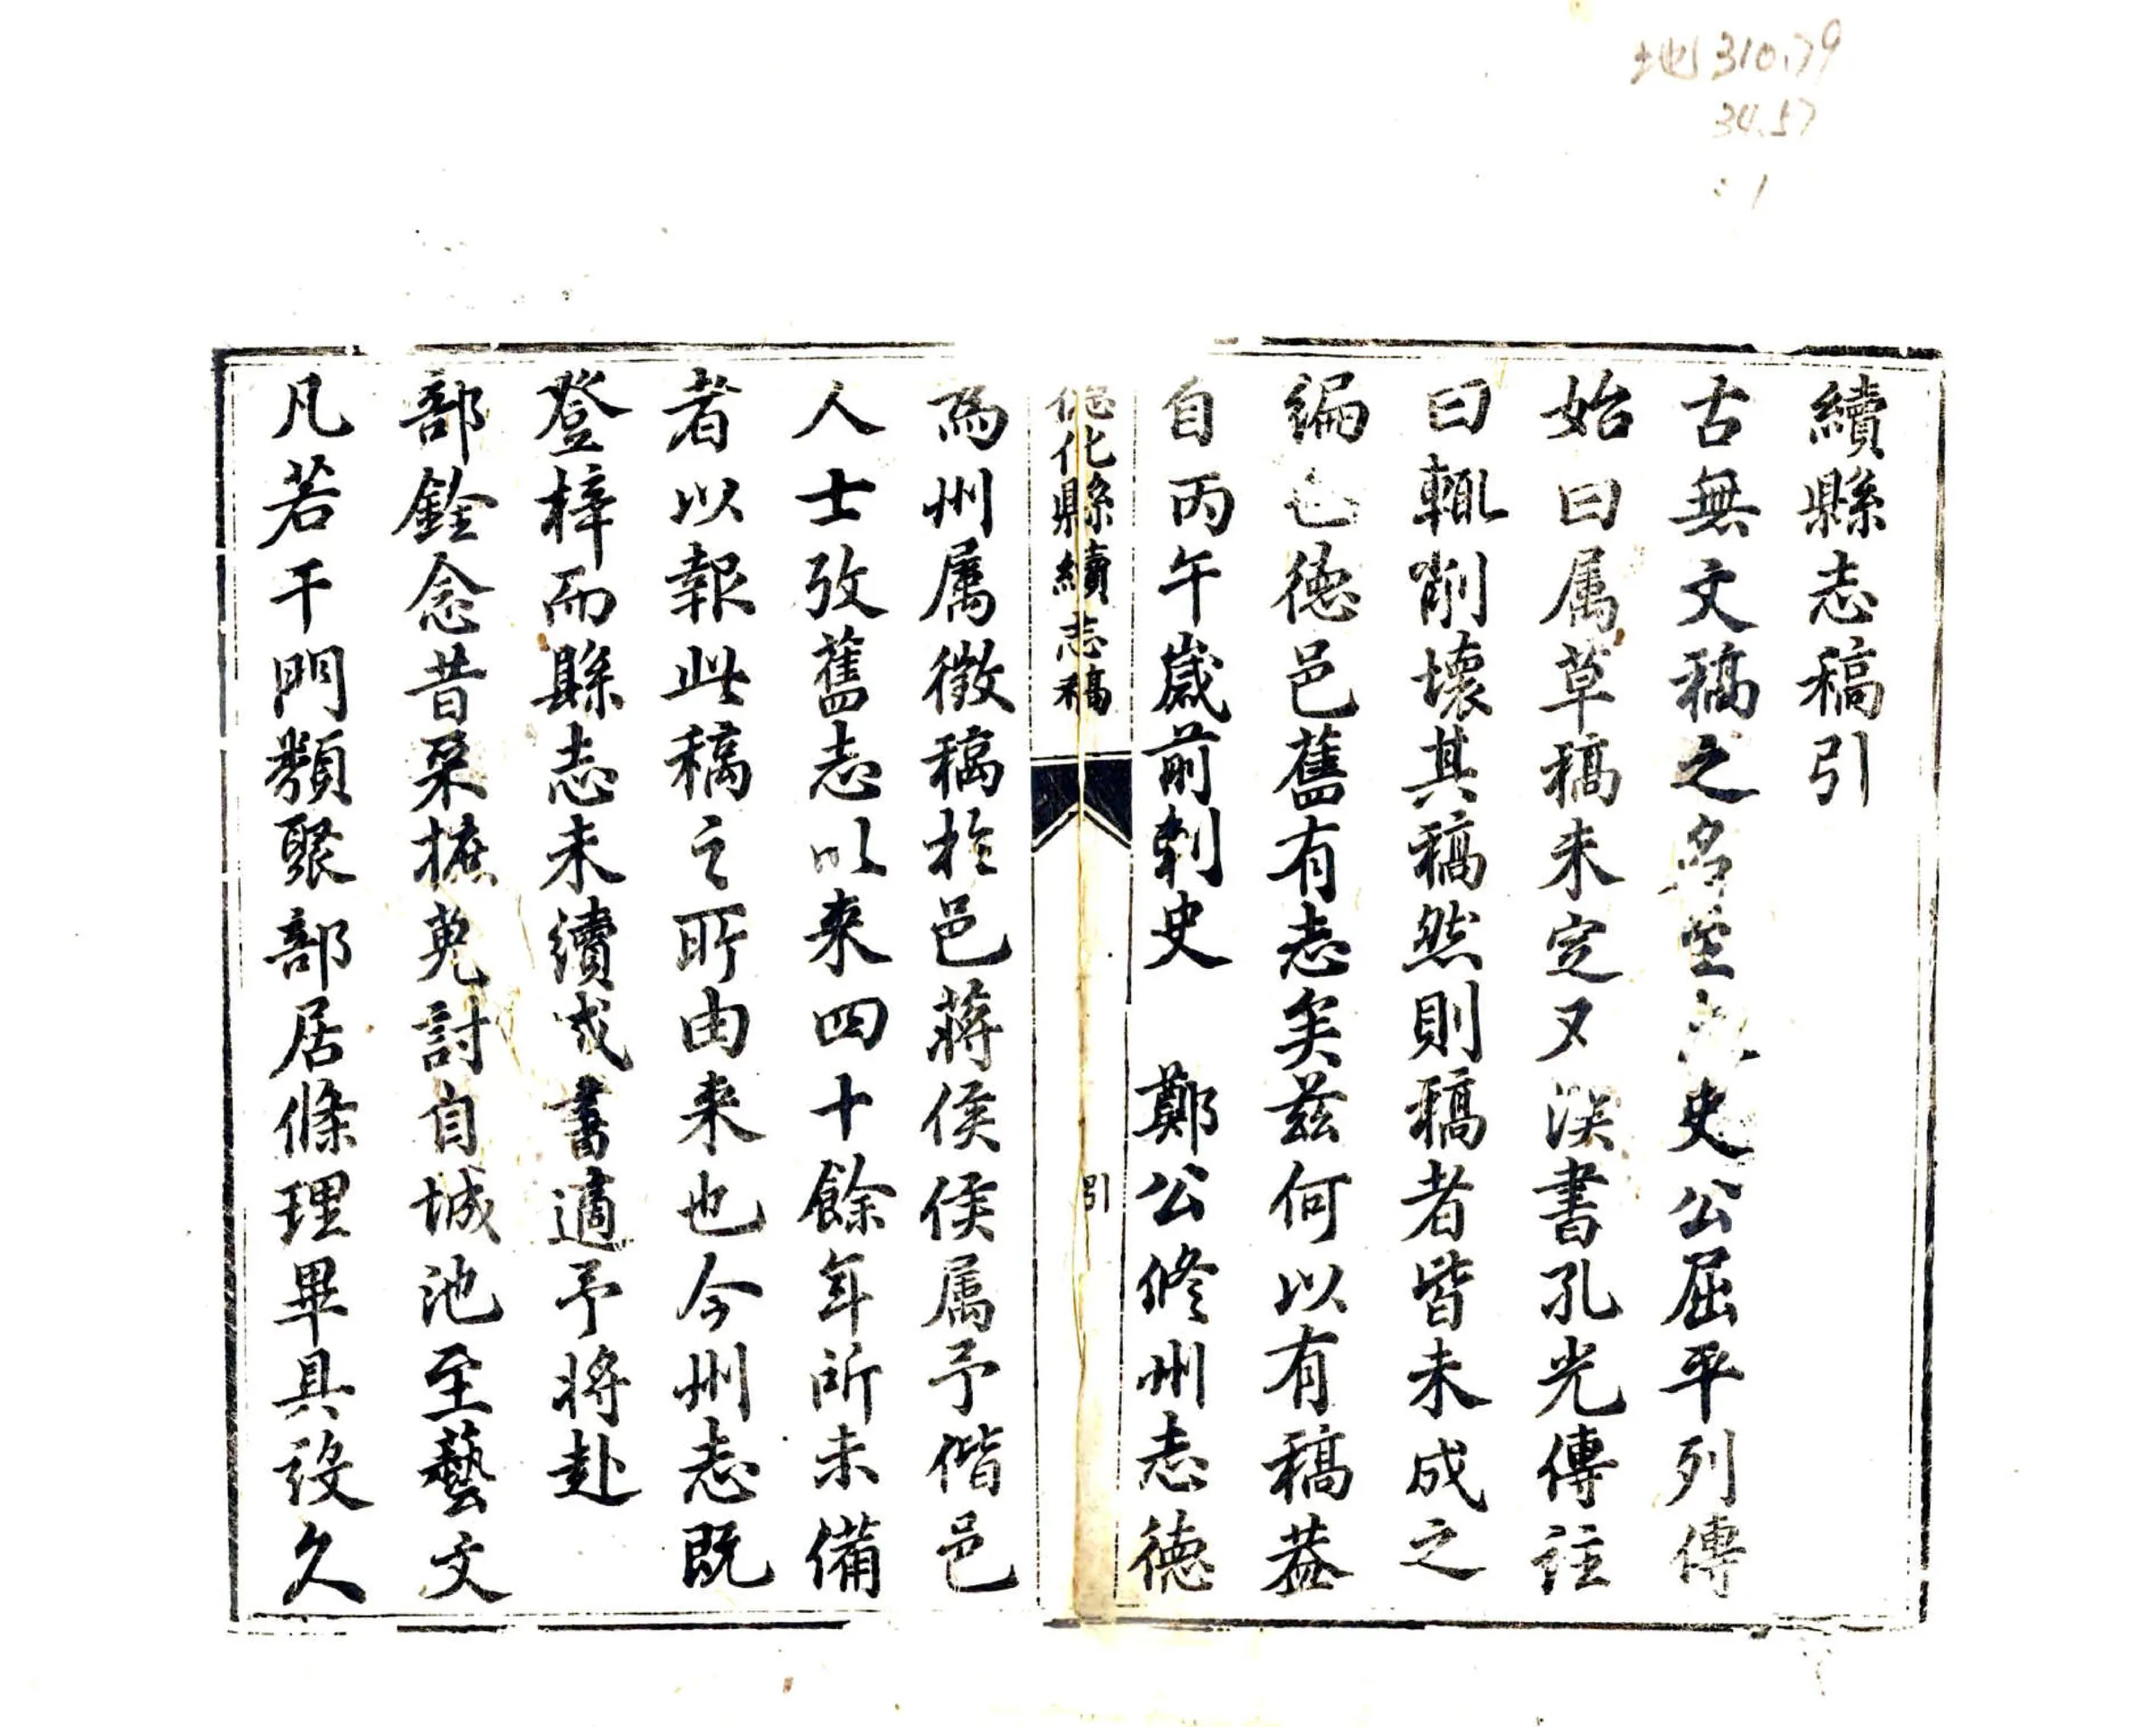 地310.79
34.57
:1
續縣志稿引
古無文稿之名至太史公屈平列傳
始曰属草稿未定又漢書孔光傳註
曰輒削壞其稿然則稿者皆未成之
編也德邑舊有志矣兹何以有稿葢
自丙午歲前刺史 鄭公修州志德
德化縣續志稿 引
為州属徵稿扵邑蔣侯侯属予偕邑
人士攷舊志以来四十餘年所未備
者以報此稿之所由来也今州志既
登梓而縣志未續成書適予將赴
部銓念昔采摭冤討自城池至藝文
凡若干門類聚部居條理畢具設久